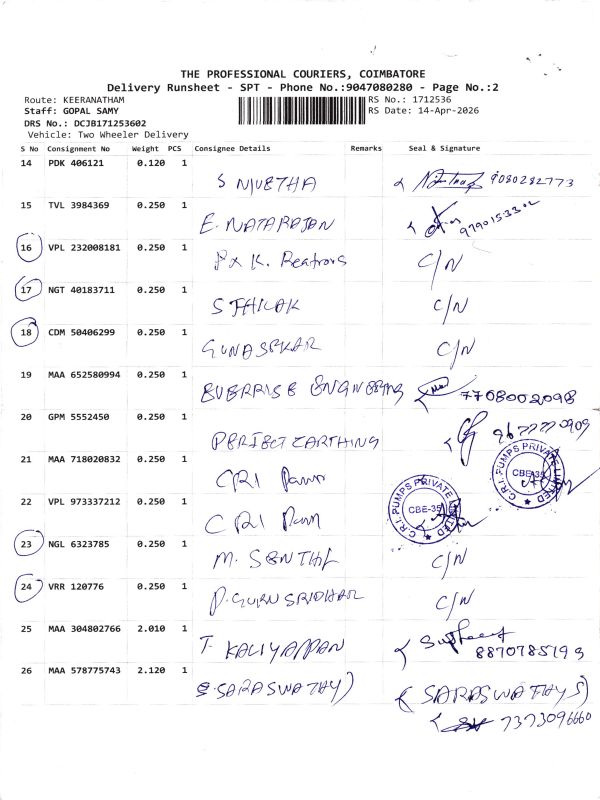 THE PROFESSIONAL COURIERS, COIMBATORE
Delivery Runsheet - SPT - Phone No.:9047080280 - Page No.:2
Route: KEERANATHAM RS No.: 1712536
Staff: GOPAL SAMY RS Date: 14-Apr-2026
DRS No.: DCJB171253602
Vehicle: Two Wheeler Delivery
S No Consignment No Weight PCS Consignee Details Remarks Seal & Signature
14 PDK 406121 0.120 1 S NIVETHA 9080282773
15 TVL 3984369 0.250 1 E. NATARAJAN 9790153302
16 VPL 232008181 0.250 1 K. C/N
17 NGT 40183711 0.250 1 S THILAK C/N
18 CDM 50406299 0.250 1 GUNASEKAR C/N
19 MAA 652580994 0.250 1 7708002098
20 GPM 5552450 0.250 1 PERFECT EARTHING
21 MAA 718020832 0.250 1 CRI C.R.I. PUMPS PRIVATE LIMITED CBE-35
22 VPL 973337212 0.250 1 CRI C.R.I. PUMPS PRIVATE LIMITED CBE-35
23 NGL 6323785 0.250 1 M. SENTHIL C/N
24 VRR 120776 0.250 1 P. GURU SRIDHAR C/N
25 MAA 304802766 2.010 1 T. KALIYAPPAN 8870785193
26 MAA 578775743 2.120 1 S. SARASWATHY) (SARASWATHY S)
7373096660